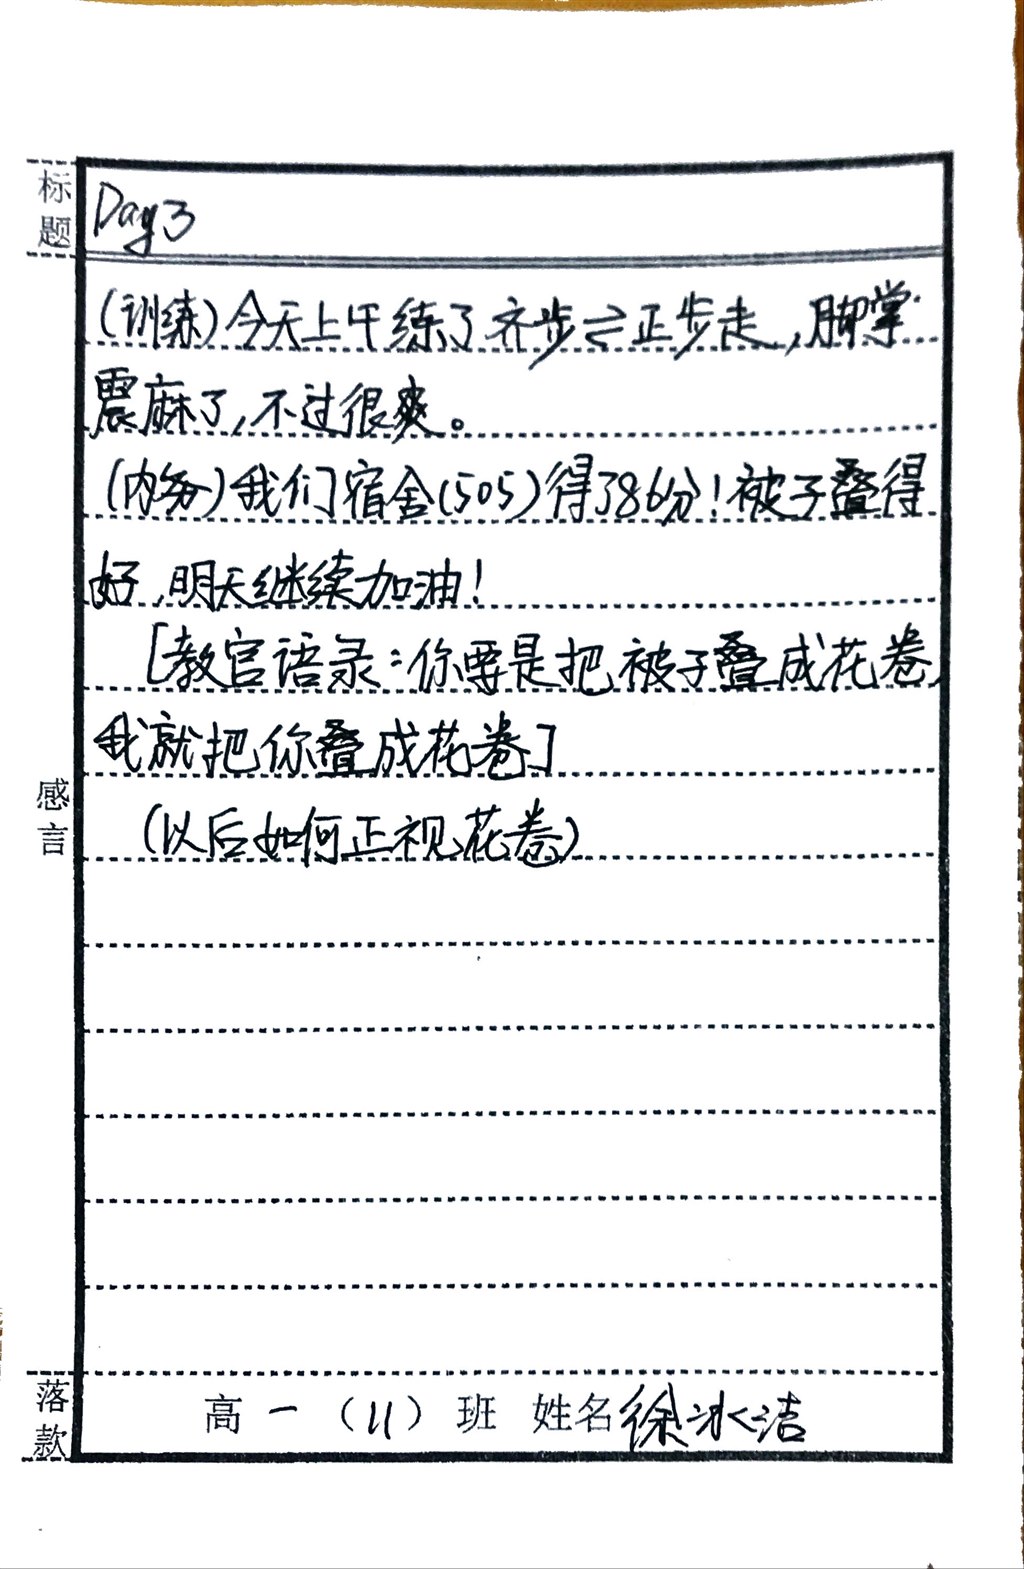 标题
Day3
(训练)今天上午练了齐步⇌正步走,脚掌
震麻了,不过很爽。
(内务)我们宿舍(505)得了86分!被子叠得
好,明天继续加油!
[教官语录:你要是把被子叠成花卷,
我就把你叠成花卷]
(以后如何正视花卷)
感言
落款
高一(11)班 姓名徐冰洁